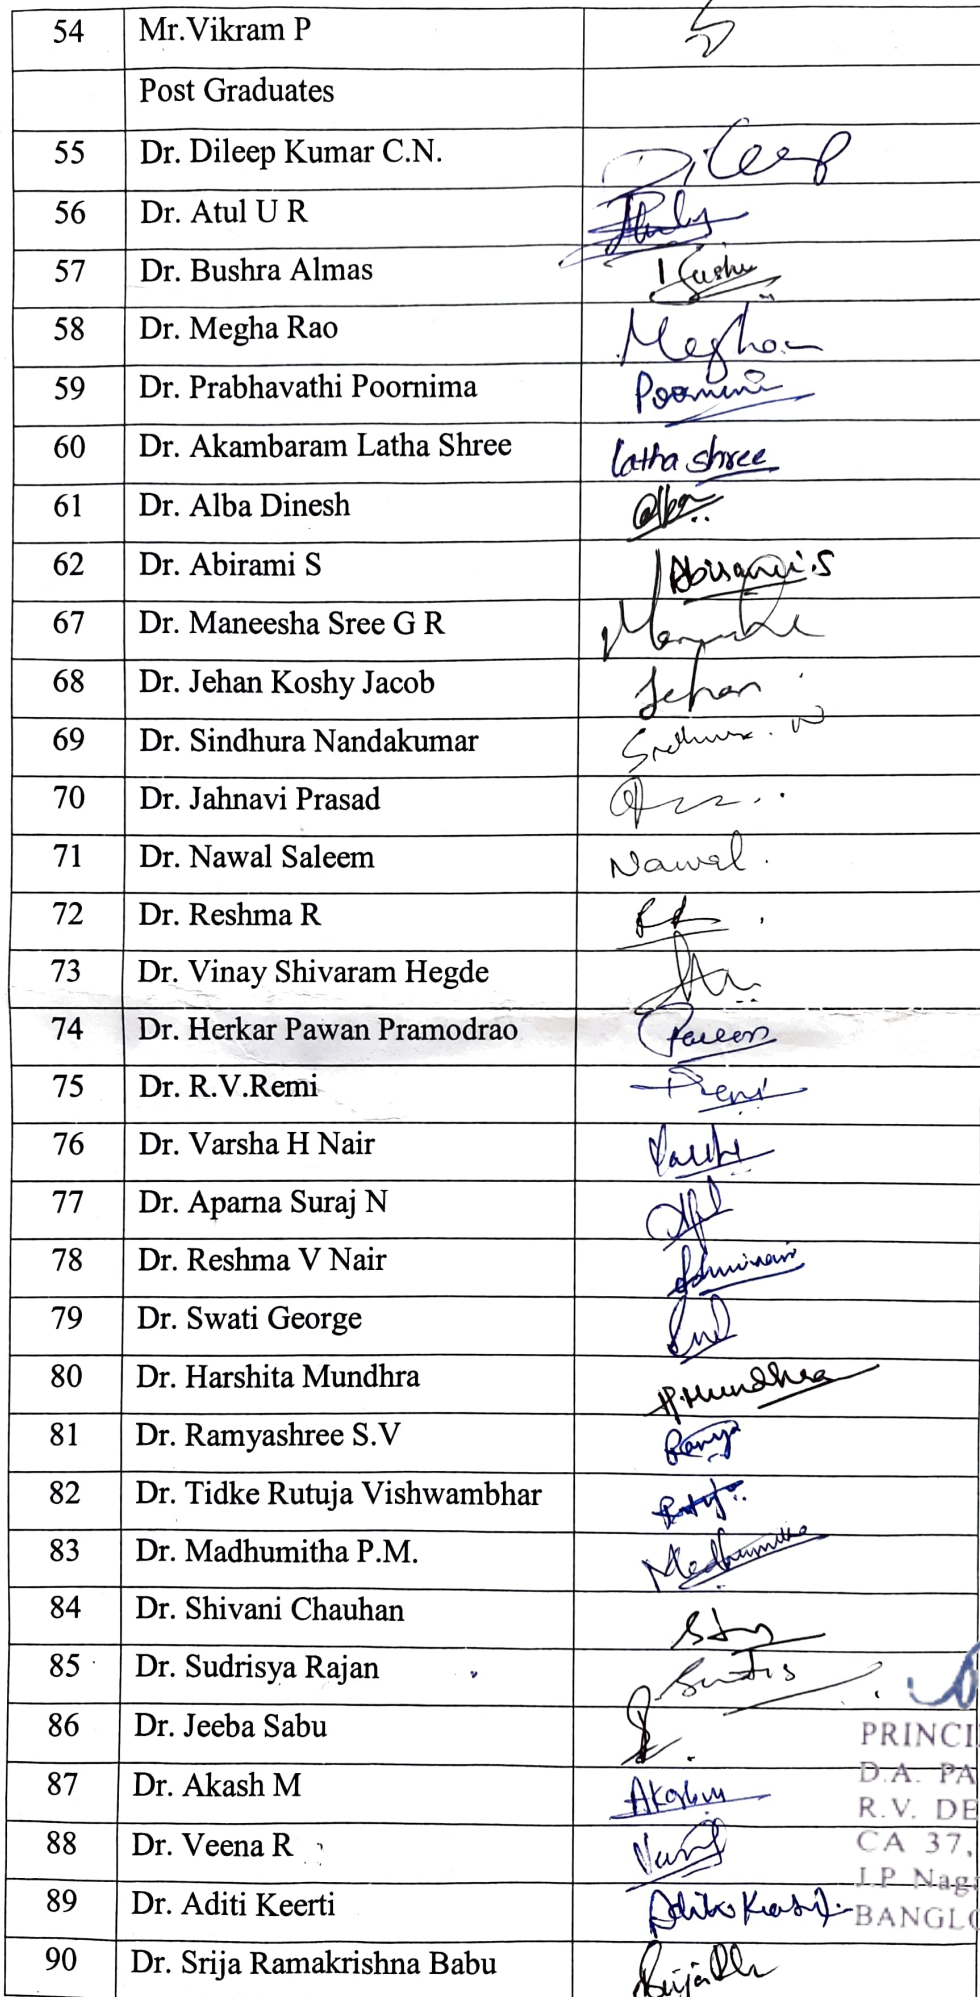 54 Mr.Vikram P
Post Graduates
55 Dr. Dileep Kumar C.N. Dileep
56 Dr. Atul U R
57 Dr. Bushra Almas
58 Dr. Megha Rao Megha
59 Dr. Prabhavathi Poornima Poornima
60 Dr. Akambaram Latha Shree Latha Shree
61 Dr. Alba Dinesh
62 Dr. Abirami S Abirami.S
67 Dr. Maneesha Sree G R
68 Dr. Jehan Koshy Jacob Jehan
69 Dr. Sindhura Nandakumar
70 Dr. Jahnavi Prasad
71 Dr. Nawal Saleem Nawal.
72 Dr. Reshma R
73 Dr. Vinay Shivaram Hegde
74 Dr. Herkar Pawan Pramodrao
75 Dr. R.V.Remi
76 Dr. Varsha H Nair
77 Dr. Aparna Suraj N
78 Dr. Reshma V Nair
79 Dr. Swati George
80 Dr. Harshita Mundhra H.Mundhra
81 Dr. Ramyashree S.V Ramya
82 Dr. Tidke Rutuja Vishwambhar
83 Dr. Madhumitha P.M. Madhumitha
84 Dr. Shivani Chauhan
85 Dr. Sudrisya Rajan
86 Dr. Jeeba Sabu
PRINCI
87 Dr. Akash M
D.A. PA
R.V. DE
88 Dr. Veena R
CA 37,
J.P Nag
89 Dr. Aditi Keerti
BANGLO
90 Dr. Srija Ramakrishna Babu